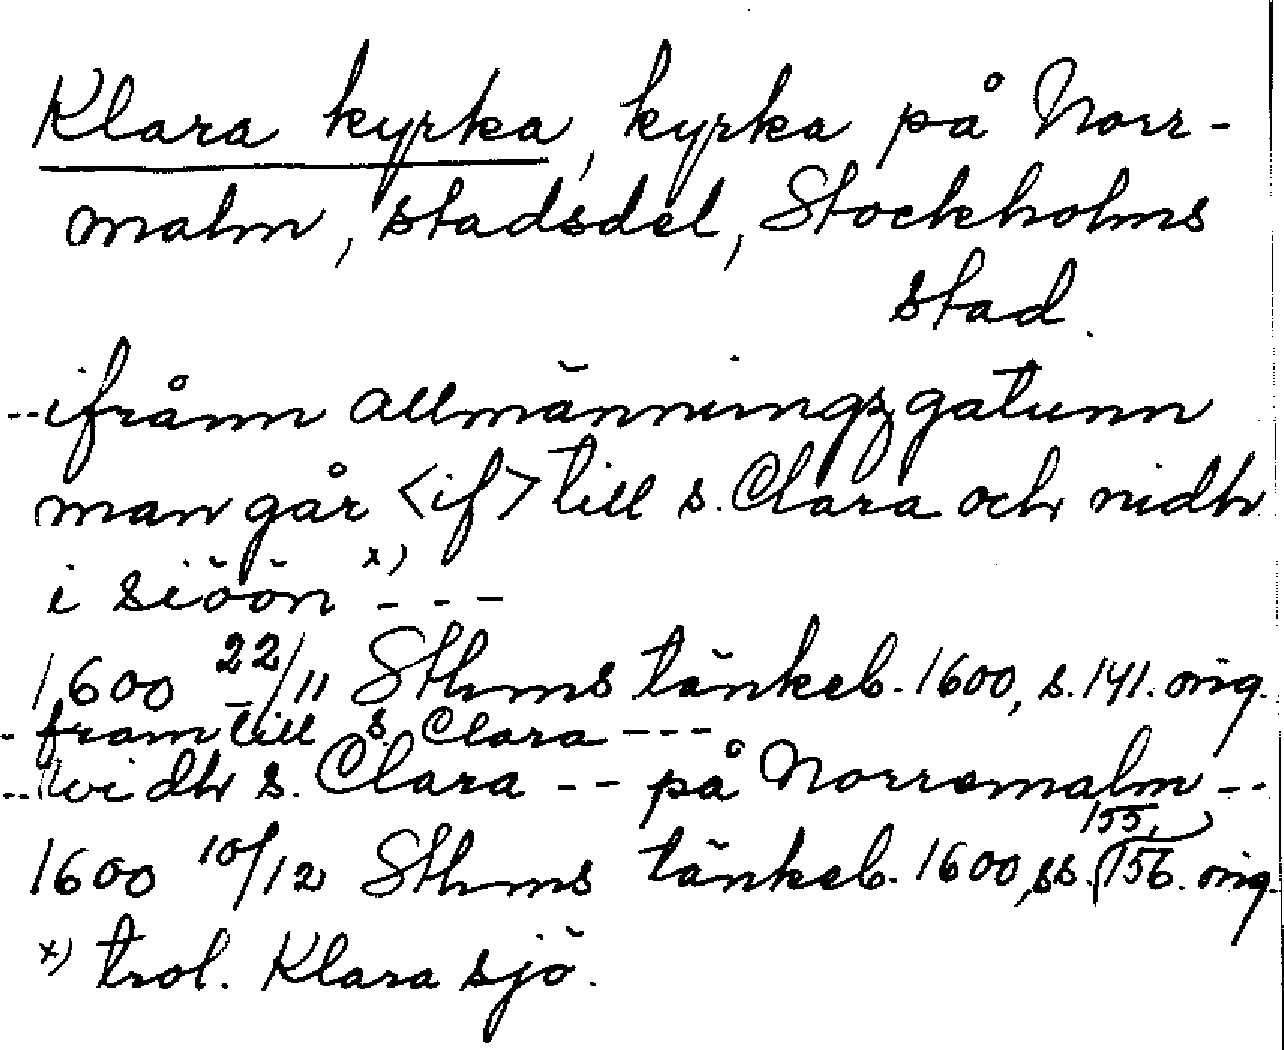 Klara kyrka, kyrka på Norr-
malm, stadsdel, Stockholms
stad.
--ifrånn allmänningzgatunn
man går <if> till s. Clara och nidh
i siöön x) - - -
1600 22/11 Sthms tänkeb. 1600, s. 141. orig.
- fram till s. Clara ---
-- widh s. Clara -- på Norremalm --
1600 10/12 Sthms tänkeb. 1600, ss. 155, 156. orig.
x) trol. Klara sjö.